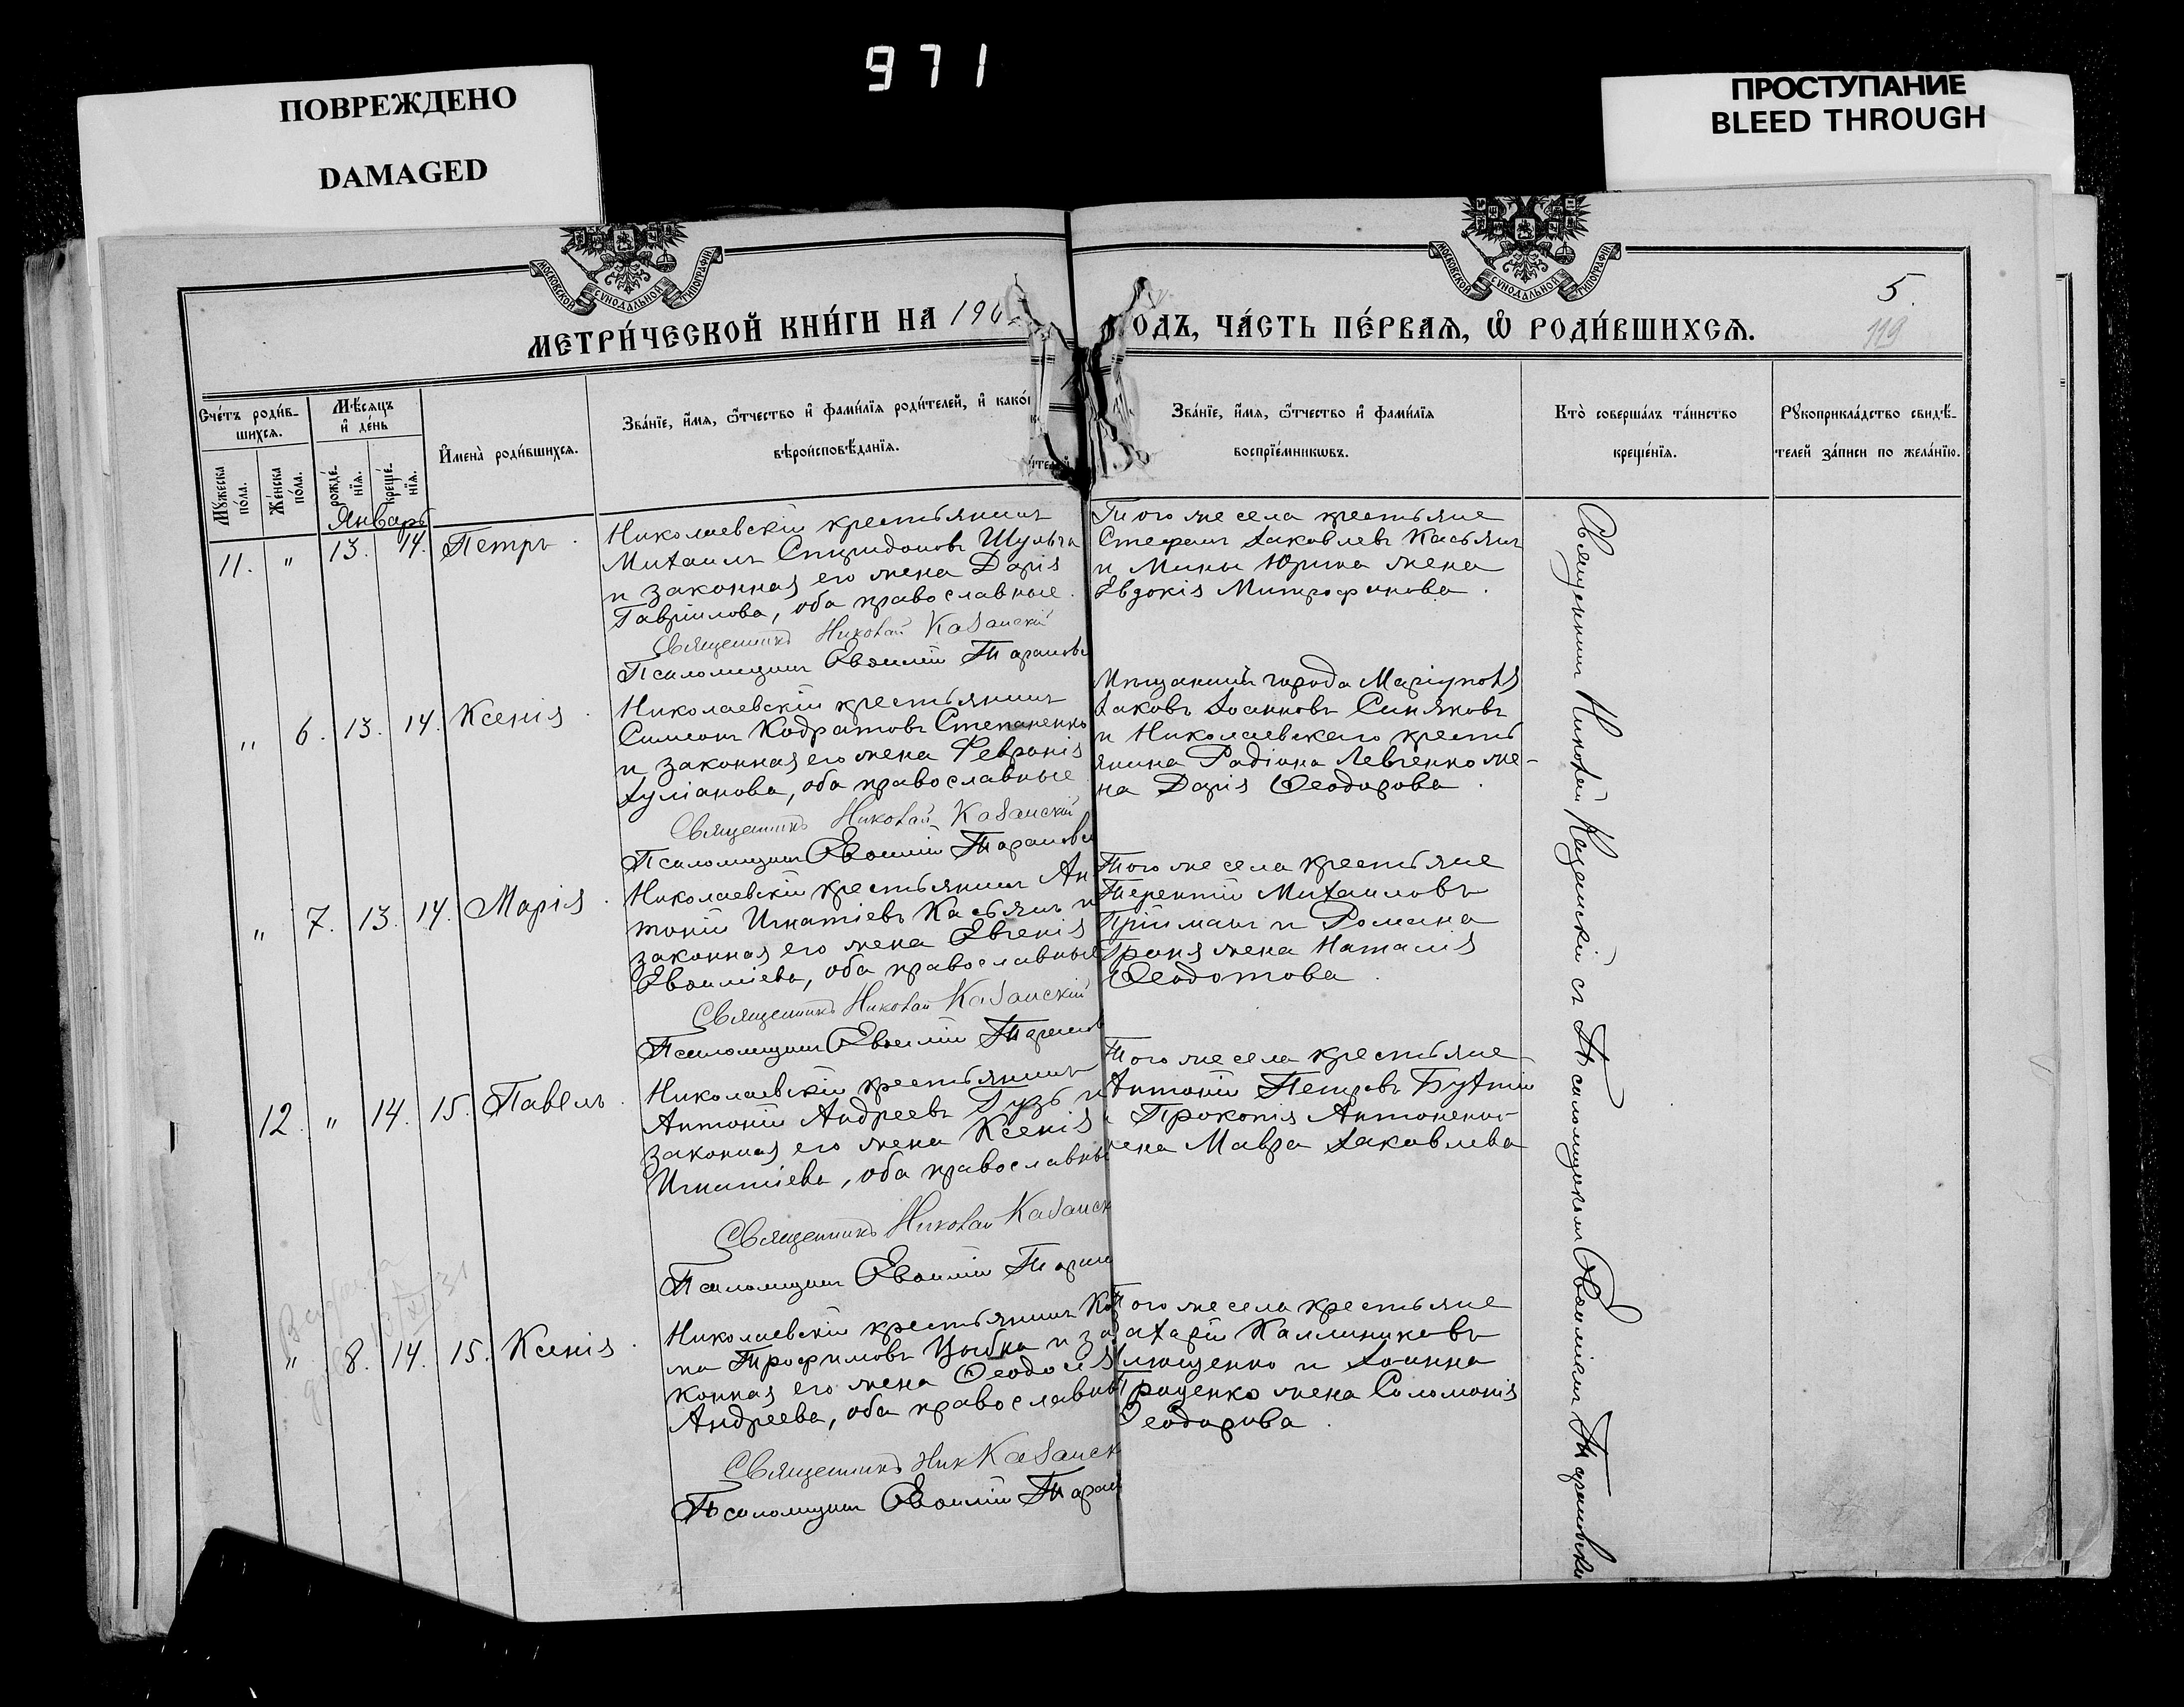 971
ПОВРЕЖДЕНО
DAMAGED
ПРОСТУПАНИЕ
BLEED THROUGH
МОСКОВСКОЙ СѴНОДАЛЬНОЙ ТИПОГРАФІИ
МОСКОВСКОЙ СѴНОДАЛЬНОЙ ТИПОГРАФІИ
5.
119
МЕТРИ́ЧЕСКОЙ КНИ́ГИ НА 190
ОДЪ, ЧА́СТЬ ПЕ́РВАѦ, Ѽ РОДИ́ВШИХСѦ.
Сче́тъ роди́в-
шихсѧ.
Мꙋ́жеска
по́ла.
Же́нска
по́ла.
Мѣ́сѧцъ
и҆ де́нь
рожде́-
нїѧ.
креще́-
нїѧ.
И҆мена̀ роди́вшихсѧ.
Зва́нїе, и҆́мѧ, ѻ҆́тчество и҆ фами́лїѧ роди́телей, и҆ како́
вѣроисповѣ́данїѧ.
Зва́нїе, и҆́мѧ, ѻ҆́тчество и҆ фами́лїѧ
воспрїе́мникѡвъ.
Кто̀ соверша́лъ та́инство
креще́нїѧ.
Рꙋкоприкла́дство свидѣ́-
телей за́писи по жела́нїю.
Январь
11. " 13. 14. Петръ.
Николаевскій крестьянинъ
Михаилъ Спиридоновъ Шульга
и законная его жена Дарія
Гавріилова, оба православные.
Священникъ Николай Казанскій
Псаломщикъ Евѳимій Тарановск
Того же села крестьяне
Стефанъ Іаковлевъ Касьянъ
и Мины Юрина жена
Евдокія Митрофанова.
" 6. 13. 14. Ксенія.
Николаевскій крестьянинъ
Симеонъ Кодратовъ Степаненко
и законная его жена Февронія
Іуліанова, оба православные
Священникъ Николай Казанскій
Псаломщикъ Евѳимій Тарановск
Мѣщанинъ города Маріуполя
Іаковъ Іоанновъ Синяковъ
и Николаевскаго кресть
янина Радіона Левченко же-
на Дарія Ѳеодорова.
" 7. 13. 14. Марія.
Николаевскій крестьянинъ Ан
тоній Игнатіевъ Касьянъ и
законная его жена Евгенія
Евѳиміева, оба православные
Священникъ Николай Казанскій
Псаломщикъ Евѳимій Таранов
Того же села крестьяне
Терентій Михаиловъ
Прійманъ и Романа
жена Наталія
Ѳеодотова.
12. " 14. 15. Павелъ.
Николаевскій крестьянинъ
Антоній Андреевъ Гузь и
законная его жена Ксенія
Игнатіева, оба православны
Священникъ Николай Казанск
Псаломщикъ Евѳимій Таран
Того же села крестьяне
Антоній Петровъ
Прокопія Антоненко
жена Мавра Іаковлева
" 8. 14. 15. Ксенія.
Николаевскій крестьянинъ Коз
ма Трофимовъ Цыбка и за
конная его жена Ѳеодосія
Андреева, оба православны
Священникъ Ник Казанск
Псаломщикъ Евѳимій Таран
Того же села крестьяне
ахарій Каллиниковъ
и Іоанна
Гриценко жена Соломонія
Ѳеодорова.
Священникъ Николай Казанскій съ Псаломщикомъ Евѳиміемъ Тарановски